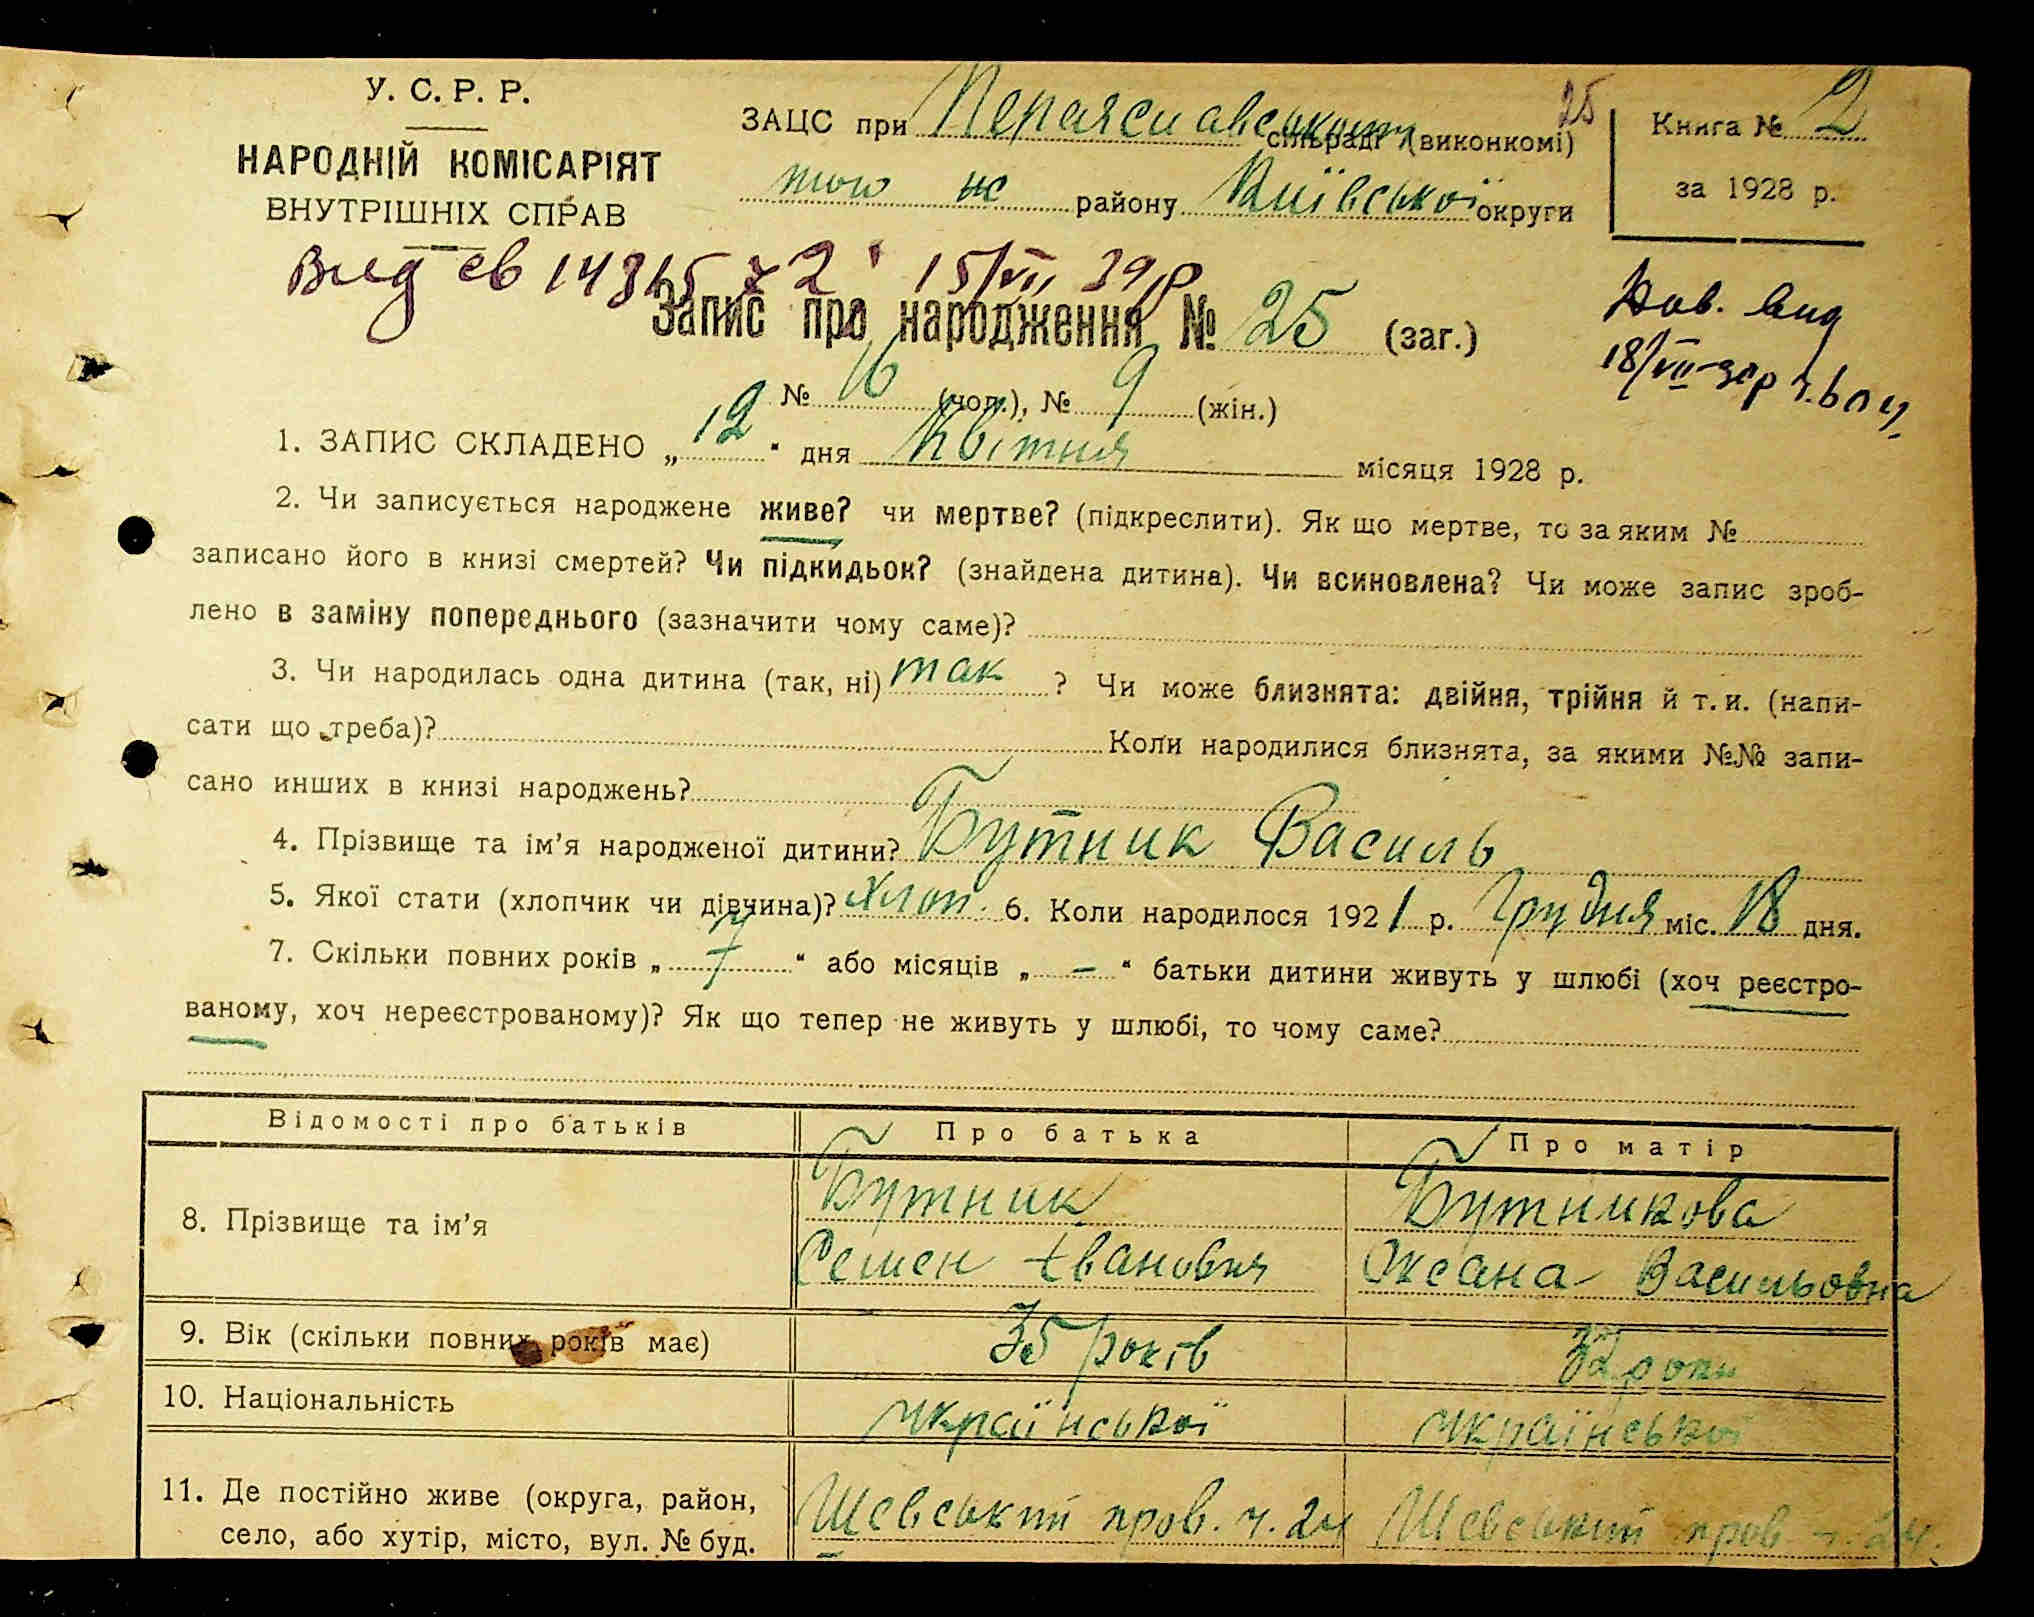 У. С. Р. Р.
НАРОДНІЙ КОМІСАРІЯТ
ВНУТРІШНІХ СПРАВ
ЗАЦС при Переяславському сільраді (виконкомі)
25
того ж району Київської округи
Книга № 2
за 1928 р.
Вид св 14315 15/VII 39 р
Дов. вид
18/VII
Запис про народження № 25 (заг.)
№ 16 (чол.), № 9 (жін.)
1. ЗАПИС СКЛАДЕНО „12“ дня Квітня місяця 1928 р.
2. Чи записується народжене живе? чи мертве? (підкреслити). Як що мертве, то за яким №
записано його в книзі смертей? Чи підкидьок? (знайдена дитина). Чи всиновлена? Чи може запис зроб-
лено в заміну попереднього (зазначити чому саме)?
3. Чи народилась одна дитина (так, ні) так ? Чи може близнята: двійня, трійня й т. и. (напи-
сати що треба)? Коли народилися близнята, за якими №№ запи-
сано инших в книзі народжень?
4. Прізвище та ім’я народженої дитини? Бутник Василь
5. Якої стати (хлопчик чи дівчина)? хлоп. 6. Коли народилося 1921 р. Грудня міс. 18 дня.
7. Скільки повних років „7“ або місяців „-“ батьки дитини живуть у шлюбі (хоч реєстро-
ваному, хоч нереєстрованому)? Як що тепер не живуть у шлюбі, то чому саме?
Відомості про батьків Про батька Про матір
8. Прізвище та ім’я
Бутник Бутникова
Семен Іванович Оксана Васильовна
9. Вік (скільки повних років має) 35 років 32 роки
10. Національність української української
11. Де постійно живе (округа, район,
село, або хутір, місто, вул. № буд.
пров. ч. 24 пров. ч. 24.